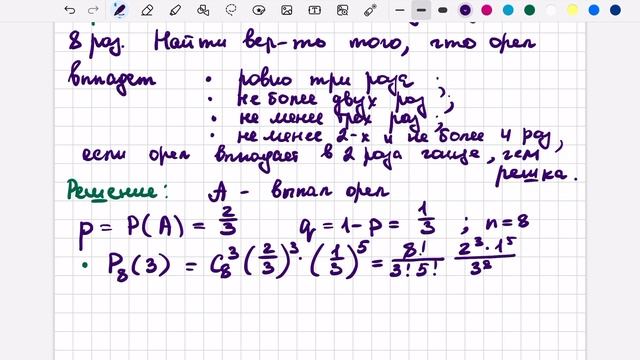 8 раз. Найти вер-то того, что орел
выпадет • ровно три раза;
• не более двух раз;
• не менее трех раз;
• не менее 2-х и не более 4 раз,
если орел выпадает в 2 раза чаще, чем
решка.
Решение: A - выпал орел
p = P(A) = 2/3 q = 1 - p = 1/3 ; n = 8
• P₈(3) = C₈³ (2/3)³ · (1/3)⁵ = 8!/(3! 5!) (2³ · 1⁵)/3⁸